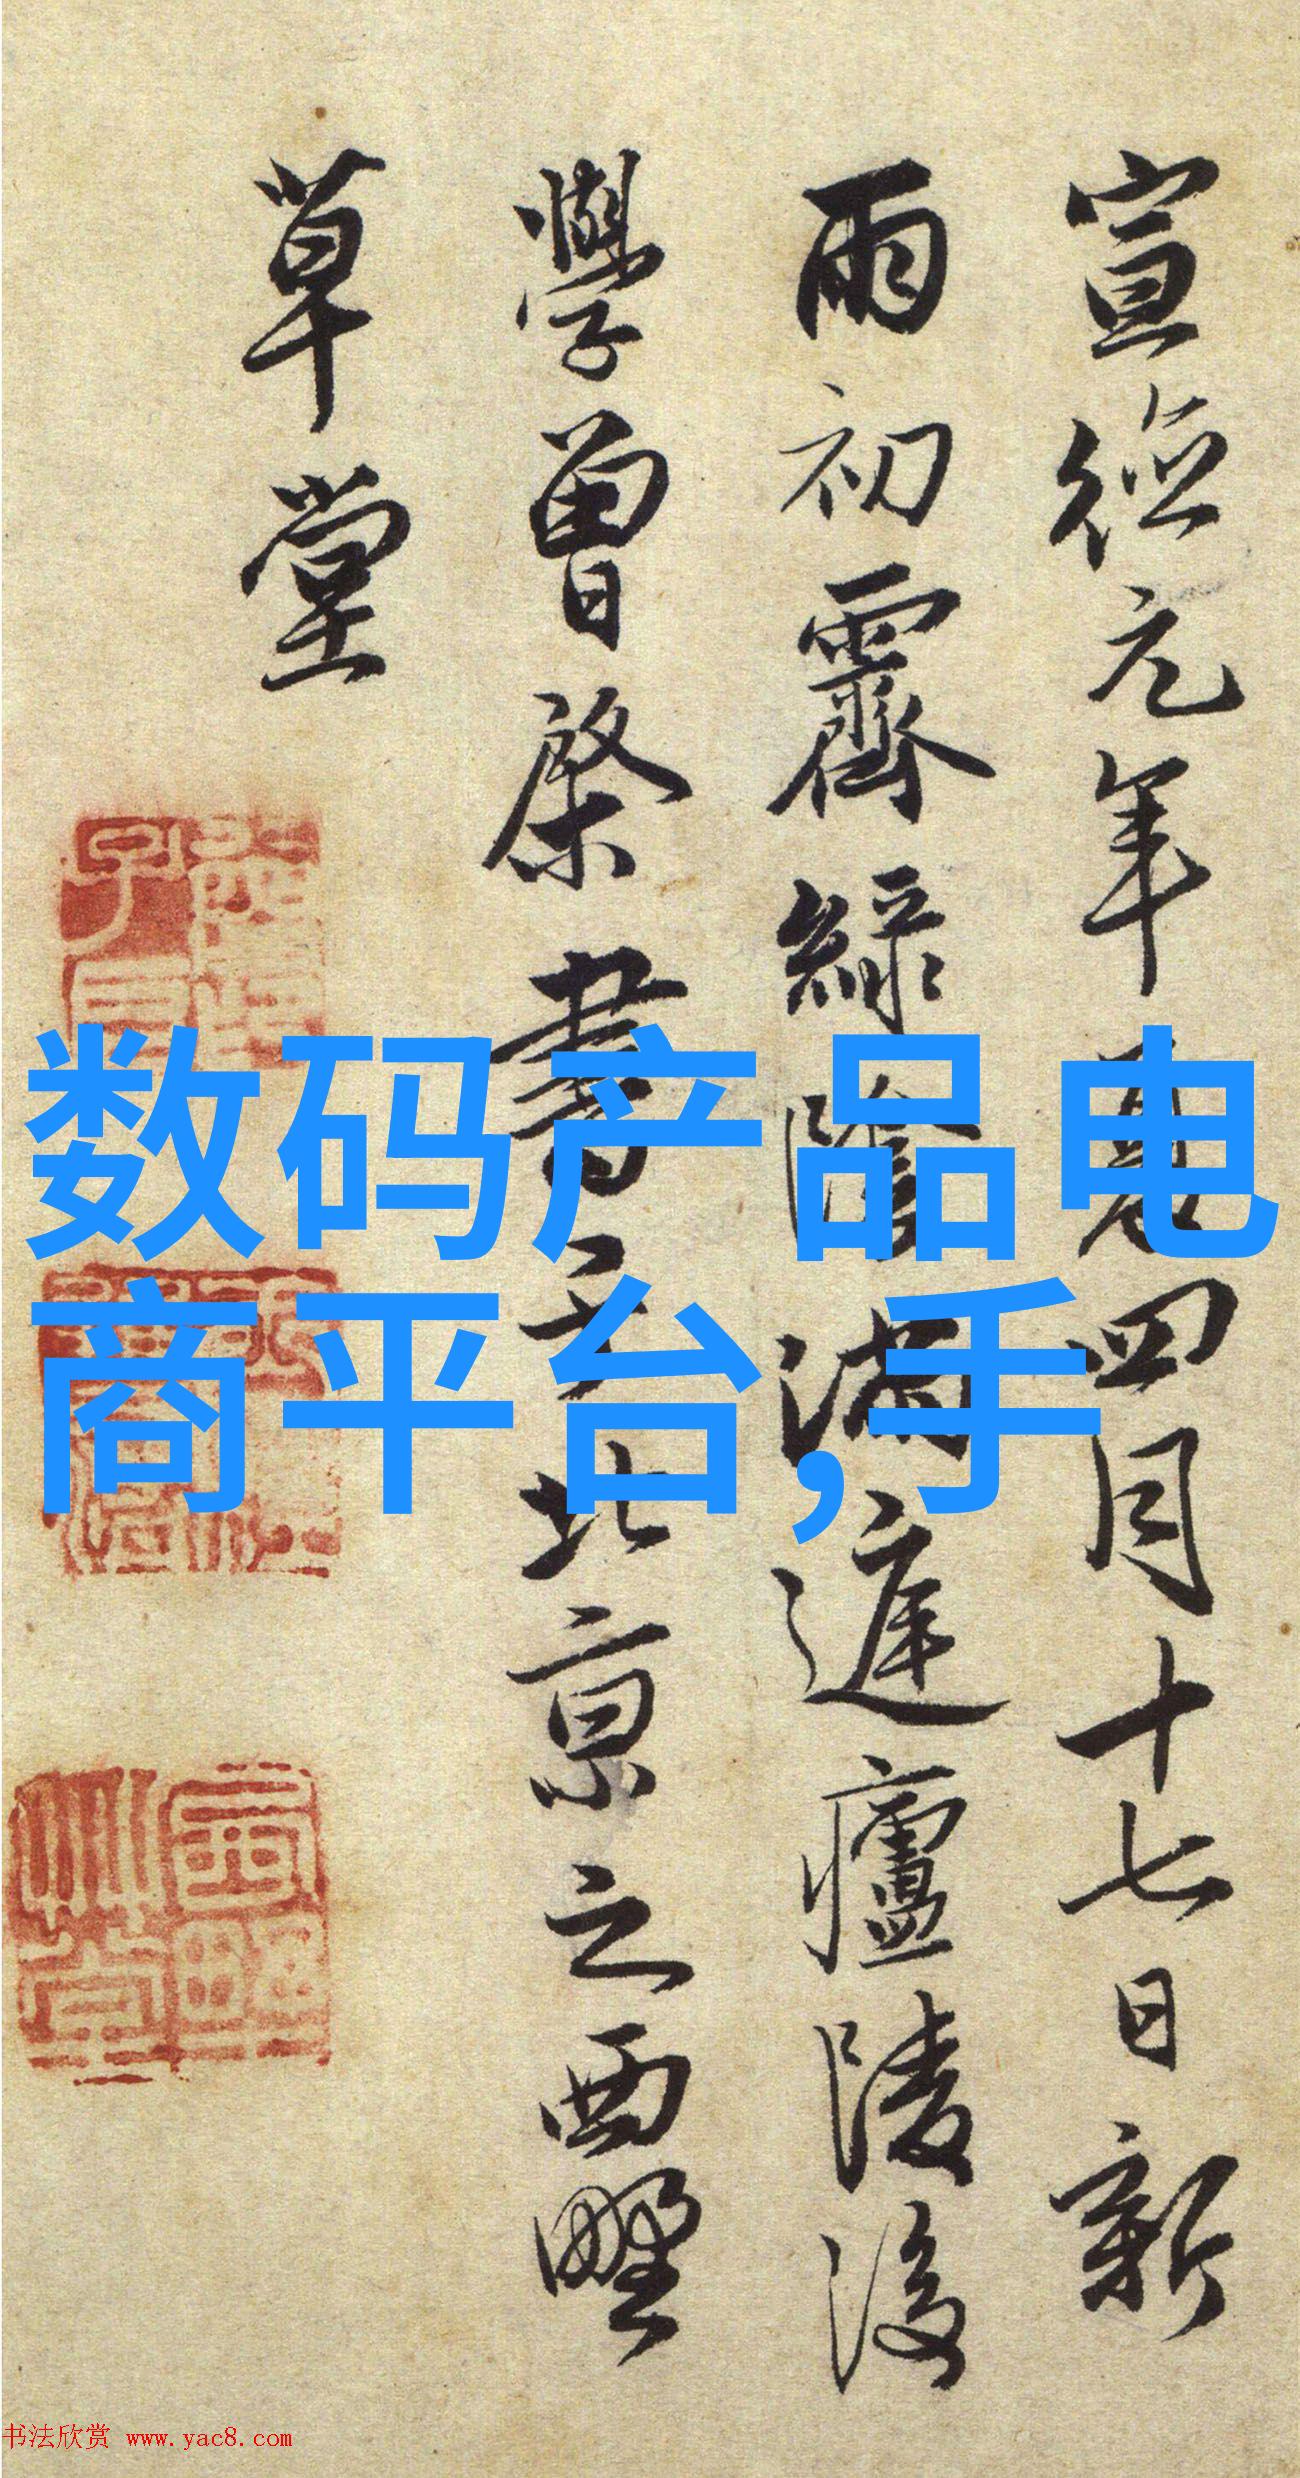 宣德元年夏四月十七日新
雨初霽綠陰滿遲廬陵後
學曾棨書于北京之西墅
草堂
数码产品电
商平台,手
书法欣赏 www.yac8.com